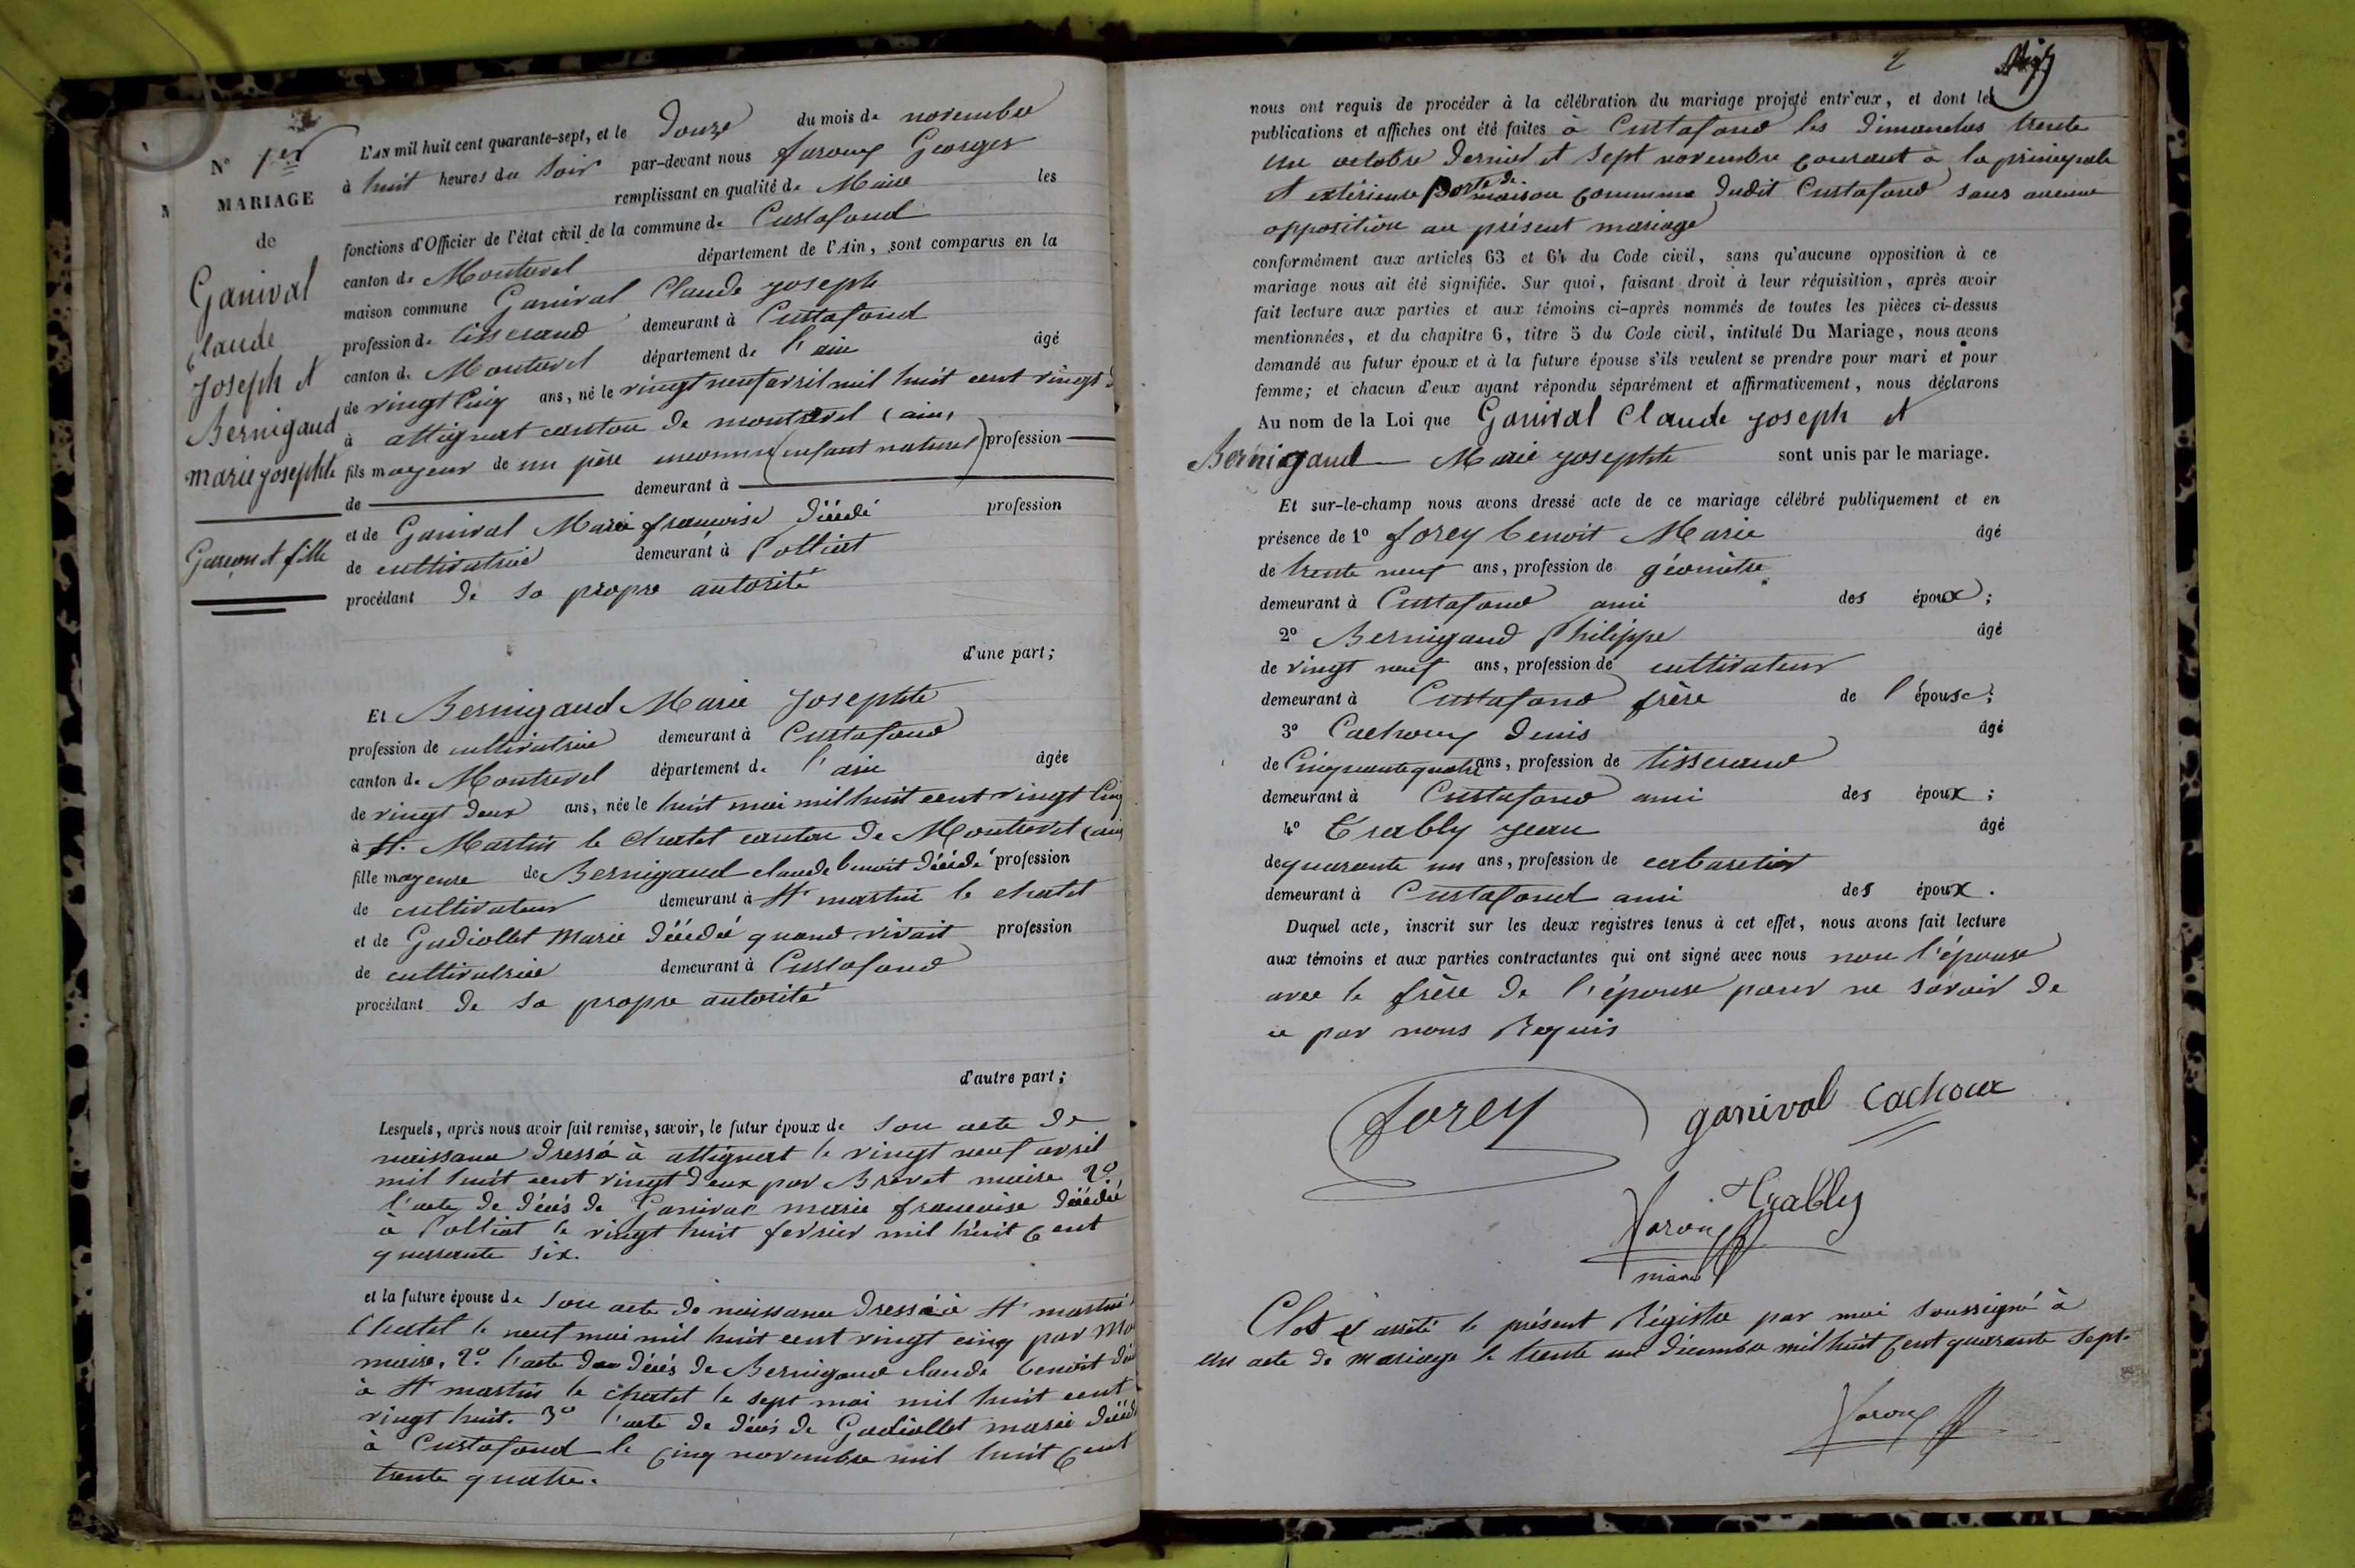 N° 1er
MARIAGE
de
Ganival
Claude
Joseph et
Bernigaud
marie josephte
Garçon et fille
L'AN mil huit cent quarante-sept, et le Douze du mois de novembre
à huit heures du soir par-devant nous faroux Georges
remplissant en qualité de Maire les
fonctions d'Officier de l'état civil de la commune de Curtafond
canton de Montrevel département de l'Ain, sont comparus en la
maison commune Ganival Claude joseph
profession de tisserand demeurant à Curtafond
canton de Montrevel département de l'ain âgé
de vingt cinq ans, né le vingt neuf avril mil huit cent vingt
à attignat canton de montrevel (ain)
fils mageur de un père inconnu (enfant naturel) profession
de demeurant à
et de Ganival Marie françoise décédé profession
de cultivatrice demeurant à Polliat
procédant de sa propre autorité
d'une part;
Et Bernigaud Marie Josephte
profession de cultivatrice demeurant à Curtafond
canton de Montrevel département de l'ain âgée
de vingt deux ans, née le huit mai mil huit cent vingt cinq
à St. Martin le chatel canton de Montrevel (ain)
fille mageure de Bernigaud claude benoit décédé profession
de cultivateur demeurant à St martin le chatel
et de Gudiollet Marie décédée quand vivait profession
de cultivatrice demeurant à Curtafond
procédant de sa propre autorité
d'autre part;
Lesquels, après nous avoir fait remise, savoir, le futur époux de son acte de
naissance dressé à attignat le vingt neuf avril
mil huit cent vingt deux par Brevet maire 2°
l'acte de décés de Ganival marie françoise décédée
à Polliat le vingt huit fevrier mil huit cent
quarante six.
et la future épouse de son acte de naissance dressé à St martin
Chatel le neuf mai mil huit cent vingt cinq par
maire, 2° l'acte de décés de Bernigaud claude benoit
à St martin le chatel le sept mai mil huit cent
vingt huit. 3° l'acte de décés de Gudiollet marie
à Curtafond le cinq novembre mil huit cent
trente quatre.
2
nous ont requis de procéder à la célébration du mariage projeté entr'eux, et dont les
publications et affiches ont été faites à Curtafond les dimanches trente
un octobre dernier et sept novembre courant à la principale
et extérieure porte de maison commune dudit Curtafond sans aucune
opposition au présent mariage
conformément aux articles 63 et 64 du Code civil, sans qu'aucune opposition à ce
mariage nous ait été signifiée. Sur quoi, faisant droit à leur réquisition, après avoir
fait lecture aux parties et aux témoins ci-après nommés de toutes les pièces ci-dessus
mentionnées, et du chapitre 6, titre 5 du Code civil, intitulé Du Mariage, nous avons
demandé au futur époux et à la future épouse s'ils veulent se prendre pour mari et pour
femme; et chacun d'eux ayant répondu séparément et affirmativement, nous déclarons
Au nom de la Loi que Ganival Claude joseph et
Bernigaud Marie Josephte sont unis par le mariage.
Et sur-le-champ nous avons dressé acte de ce mariage célébré publiquement et en
présence de 1° forey benoit Marie âgé
de trente neuf ans, profession de géomètre
demeurant à Curtafond ami des époux;
2° Bernigaud Philippe âgé
de vingt neuf ans, profession de cultivateur
demeurant à Curtafond frère de l'épouse;
3° Cachoux Denis âgé
de Cinquante quatre ans, profession de tisserand
demeurant à Curtafond ami des époux;
4° Trably jean âgé
de quarante un ans, profession de cabaretier
demeurant à Curtafond ami des époux.
Duquel acte, inscrit sur les deux registres tenus à cet effet, nous avons fait lecture
aux témoins et aux parties contractantes qui ont signé avec nous non l'épouse
avec le frère de l'épouse pour ne savoir de
ce par nous Requis
Forey ganival Cachoux
Trably
Faroux
maire
Clos et arrêté le présent Régistre par moi soussigné à
un acte de mariage le trente un décembre mil huit cent quarante sept.
Faroux